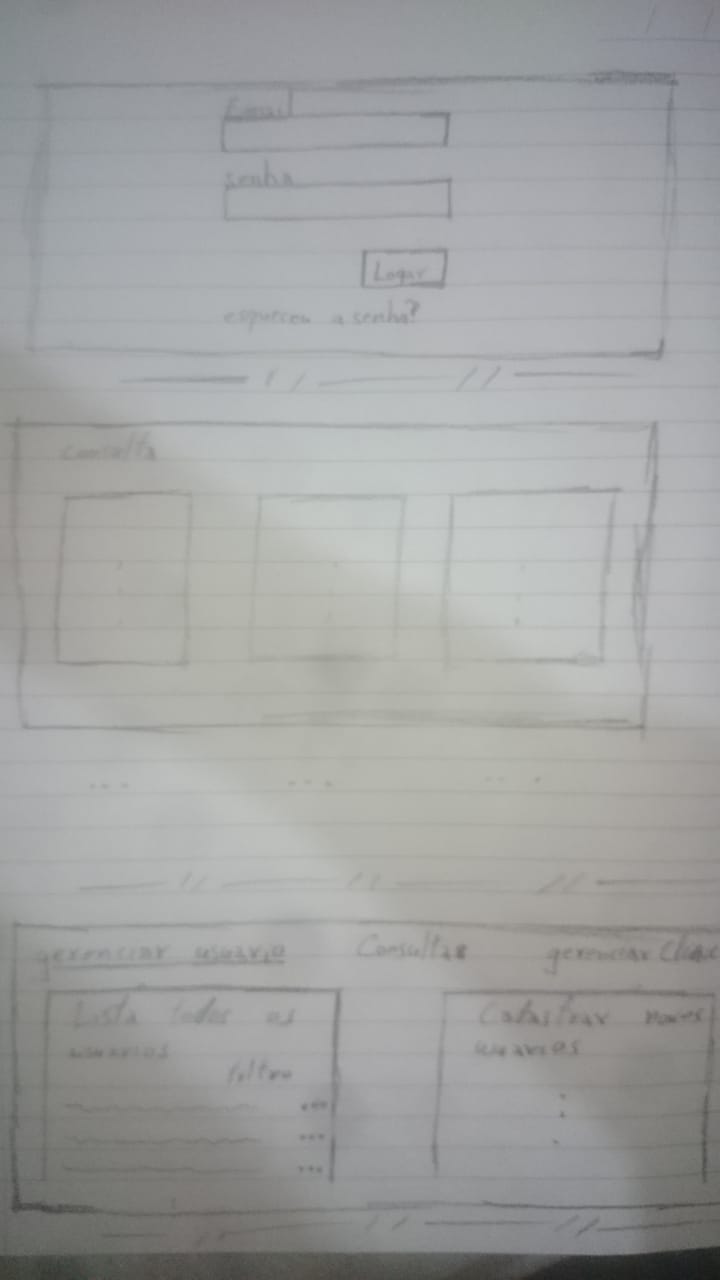 Email
senha
Logar
esqueceu a senha?
consulta
gerenciar usuario Consultas gerenciar
Lista todos os
usuarios
filtro
Cadastrar novos
usuarios